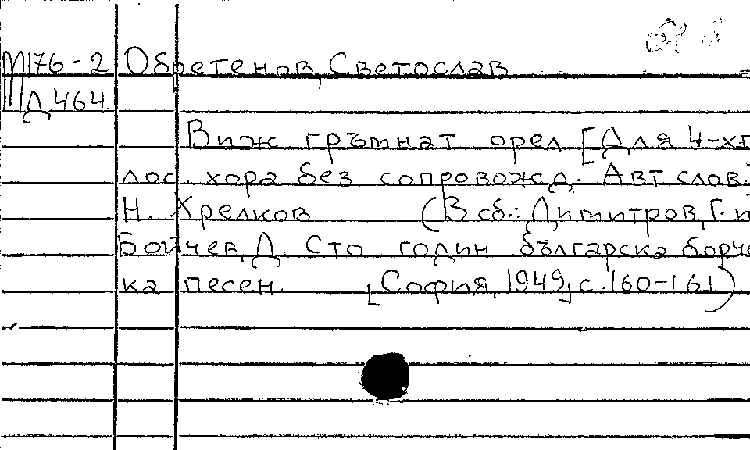 М76-2 Обретенов, Светослав
Д464
Виж гръмнат орел [Для 4-хг
лос. хора без сопровожд. Авт слав.
Н. Хрелков (В сб.: Димитров, Г. и
Бойчев, Д. Сто годин българска борче
ка песен. [София, 1949] с. 160-161)